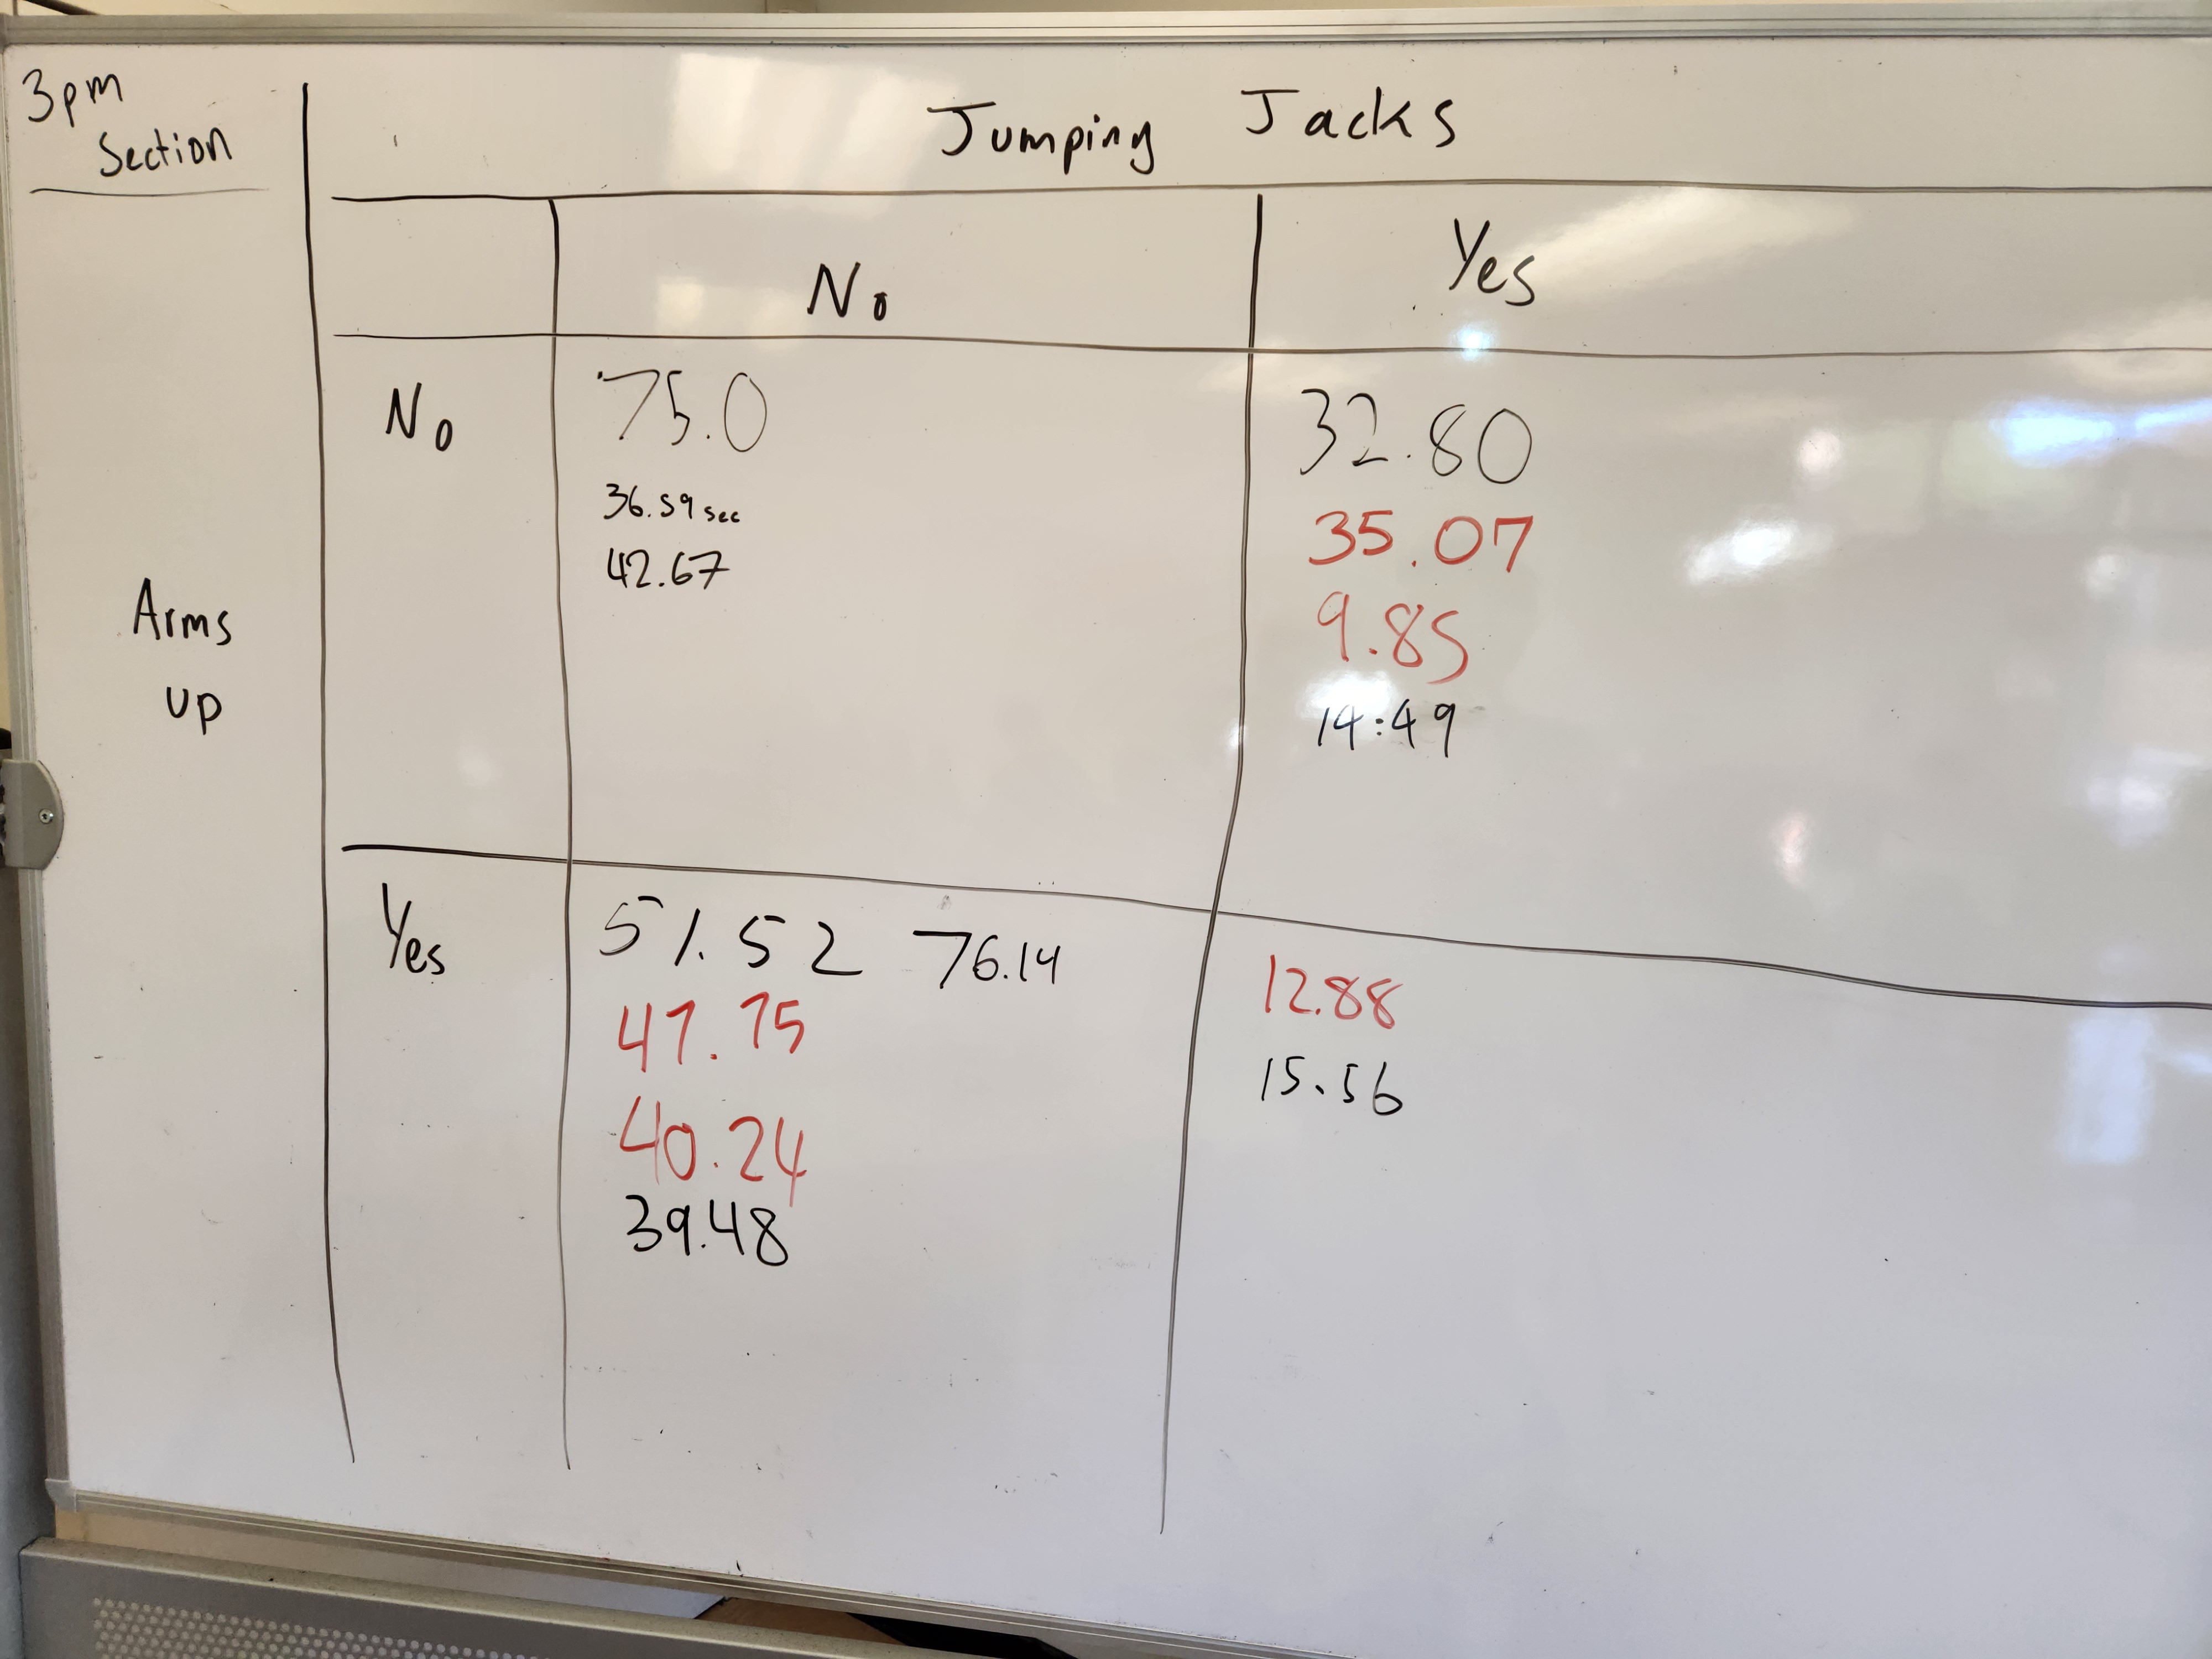 3pm
Section
Jumping Jacks
No
Yes
Arms
up
No
75.0
36.59 sec
42.67
32.80
35.07
9.85
14:49
Yes
51.52 76.14
40.24
39.48
12.88
15.56